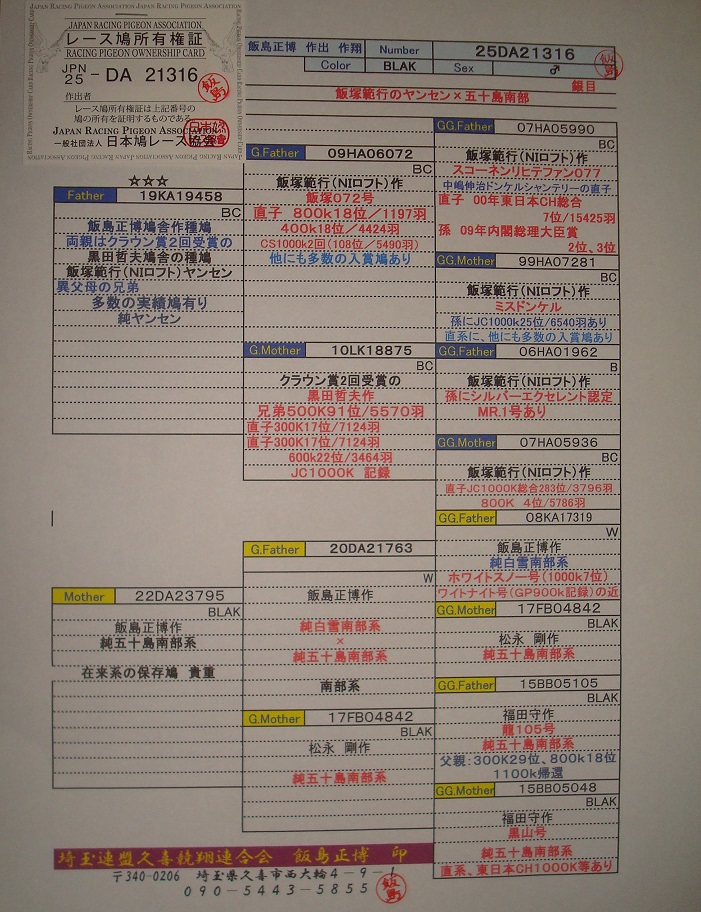 JAPAN RACING PIGEON ASSOCIATION
レース鳩所有権証
RACING PIGEON OWNERSHIP CARD
JPN 25 - DA 21316
作出者
レース鳩所有権証は上記番号の
鳩の所有を証明するものである
JAPAN RACING PIGEON ASSOCIATION
一般社団法人 日本鳩レース協会
飯島正博 作出 作翔 Number 25DA21316
Color BLAK Sex ♂
銀目
飯塚範行のヤンセン×五十島南部
☆☆☆
Father 19KA19458
BC
飯島正博鳩舎作種鳩
両親はクラウン賞2回受賞の
黒田哲夫鳩舎の種鳩
飯塚範行(NIロフト)ヤンセン
異父母の兄弟
多数の実績鳩有り
純ヤンセン
Mother 22DA23795
BLAK
飯島正博作
純五十島南部系
在来系の保存鳩 貴重
G.Father 09HA06072
BC
飯塚範行(NIロフト)作
飯塚072号
直子 800k18位/1197羽
400k18位/4424羽
CS1000k2回(108位/5490羽)
他にも多数の入賞鳩あり
G.Mother 10LK18875
BC
クラウン賞2回受賞の
黒田哲夫作
兄弟500K91位/5570羽
直子300K17位/7124羽
直子300K17位/7124羽
600k22位/3464羽
JC1000K 記録
G.Father 20DA21763
W
飯島正博作
純白雪南部系
×
純五十島南部系
南部系
G.Mother 17FB04842
BLAK
松永 剛作
純五十島南部系
GG.Father 07HA05990
BC
飯塚範行(NIロフト)作
スコーネンリヒテファン077
中嶋伸治ドンケルシャンテリーの直子
直子 00年東日本CH総合
7位/15425羽
孫 09年内閣総理大臣賞
2位、3位
GG.Mother 99HA07281
BC
飯塚範行(NIロフト)作
ミスドンケル
孫にJC1000k25位/6540羽あり
直系に、他にも多数の入賞鳩あり
GG.Father 06HA01962
B
飯塚範行(NIロフト)作
孫にシルバーエクセレント認定
MR.1号あり
GG.Mother 07HA05936
BC
飯塚範行(NIロフト)作
直子JC1000K総合283位/3796羽
800K 4位/5786羽
GG.Father 08KA17319
W
飯島正博作
純白雪南部系
ホワイトスノー号(1000k7位)
ワイトナイト号(GP900k記録)の近
GG.Mother 17FB04842
BLAK
松永 剛作
純五十島南部系
GG.Father 15BB05105
BLAK
福田守作
龍105号
純五十島南部系
父親:300K29位、800k18位
1100k帰還
GG.Mother 15BB05048
BLAK
福田守作
黒山号
純五十島南部系
直系、東日本CH1000K等あり
埼玉連盟久喜競翔連合会 飯島正博 印
〒340-0206 埼玉県久喜市西大輪4-9-1
090-5443-5855